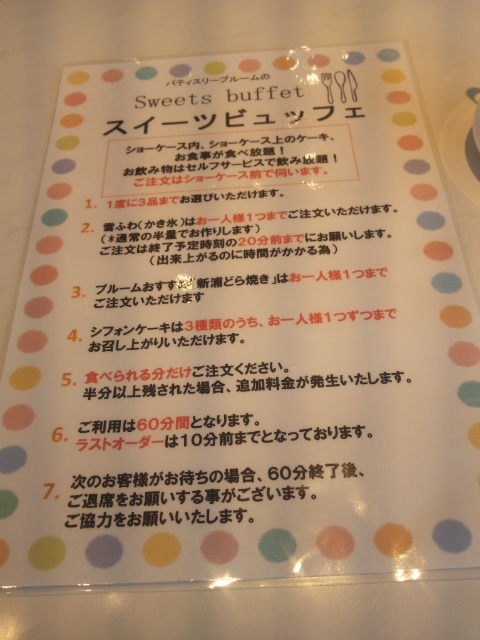 パティスリーブルームの
Sweets buffet
スイーツビュッフェ
ショーケース内、ショーケース上のケーキ、
お食事が食べ放題！
お飲み物はセルフサービスで飲み放題！
ご注文はショーケース前で伺います。
1. 1度に3品までお選びいただけます。
2. 雪ふわ(かき氷)はお一人様1つまでご注文いただけます。
(*通常の半量でお作りします)
ご注文は終了予定時刻の20分前までにお願いします。
(出来上がるのに時間がかかる為)
3. ブルームおすすめ「新浦どら焼き」はお一人様1つまで
ご注文いただけます
4. シフォンケーキは3種類のうち、お一人様1つずつまで
お召し上がりいただけます。
5. 食べられる分だけご注文ください。
半分以上残された場合、追加料金が発生いたします。
6. ご利用は60分間となります。
ラストオーダーは10分前までとなっております。
7. 次のお客様がお待ちの場合、60分終了後、
ご退席をお願いする事がございます。
ご協力をお願いいたします。